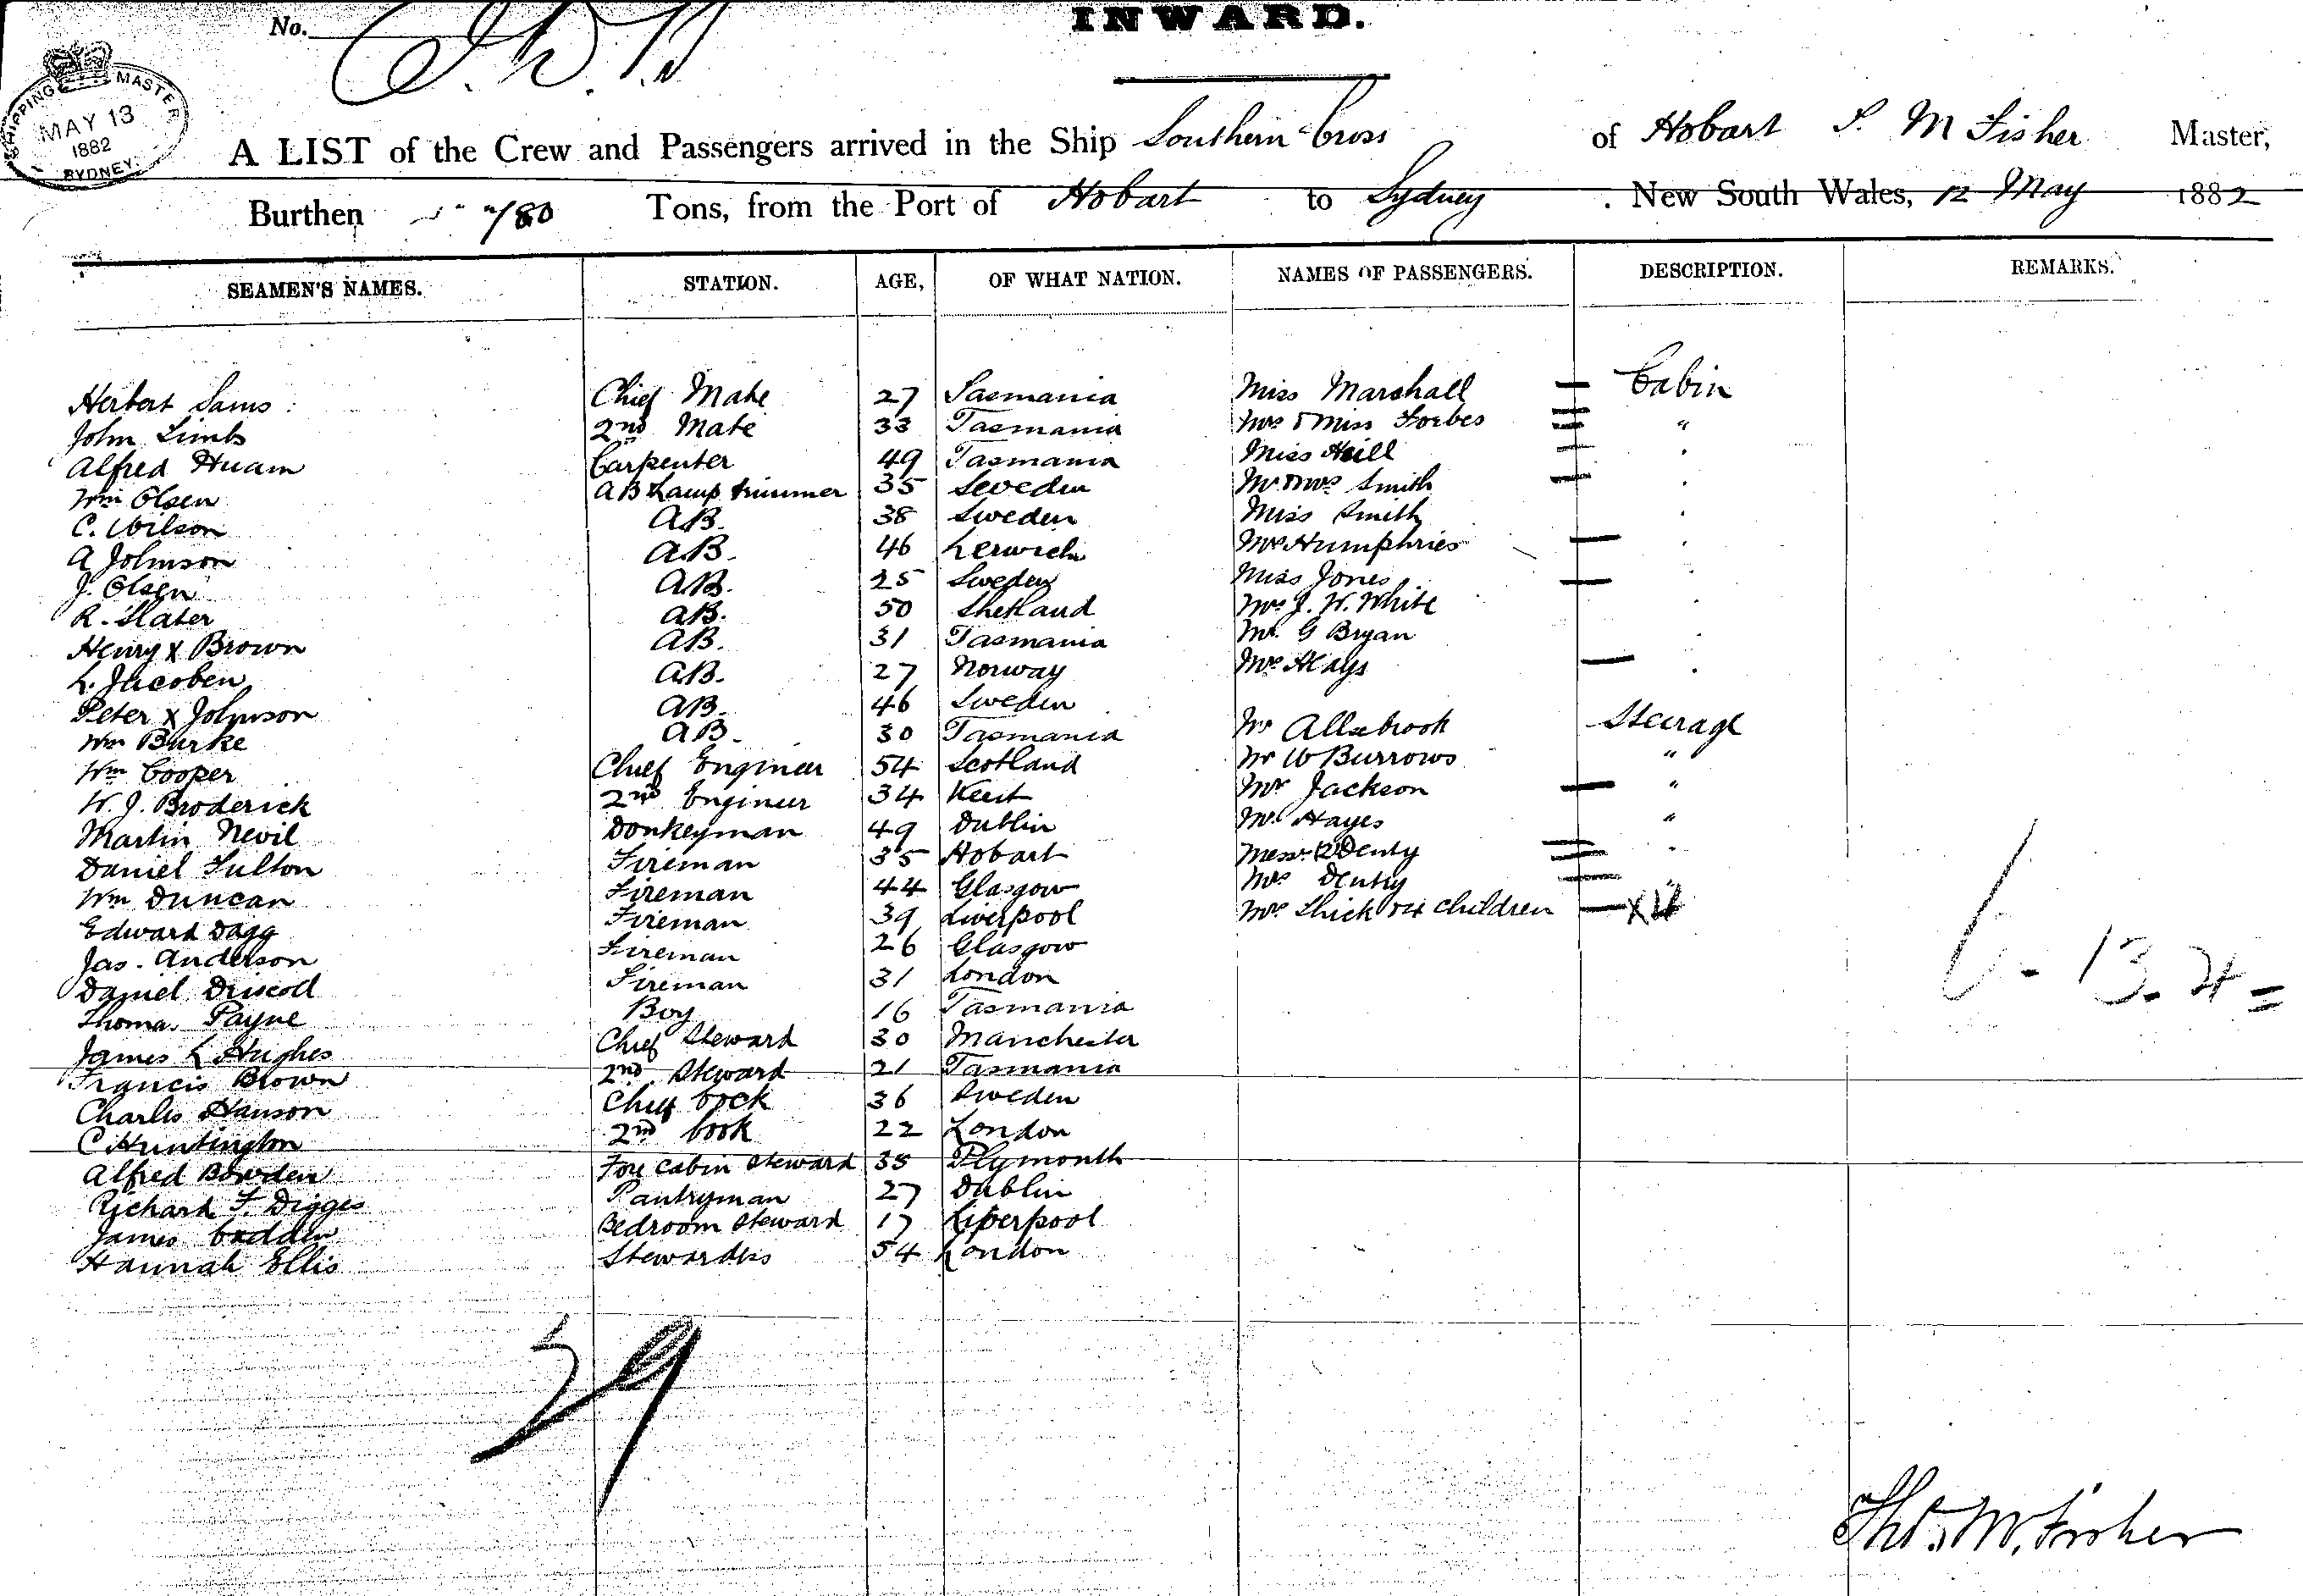 No.
INWARD.
SHIPPING MASTER
MAY 13
1882
SYDNEY
A LIST of the Crew and Passengers arrived in the Ship Southern Cross of Hobart T. M Fisher Master,
Burthen /80 Tons, from the Port of Hobart to Sydney. New South Wales, 12 May 1882
SEAMEN'S NAMES. STATION. AGE, OF WHAT NATION. NAMES OF PASSENGERS. DESCRIPTION. REMARKS.
Herbert Sams Chief Mate 27 Tasmania Miss Marshall — Cabin
John Limb 2nd Mate 33 Tasmania Mrs & Miss Forbes "
Alfred Carpenter 49 Tasmania Miss
Wm Olsen AB Lamp trimmer 35 Sweden Mr & Mrs Smith
C. Wilson AB. 38 Sweden Miss Smith
A Johnson AB. 46 Lerwick Mrs Humphries —
J. Olsen AB. 25 Sweden Miss Jones —
R. Slater AB. 50 Shetland Mrs J. W. White
Henry X Brown AB. 31 Tasmania Mr. G Bryan
L. Jacoben AB. 27 Norway Mrs Hays —
Peter X Johnson AB. 46 Sweden
Wm Burke AB. 30 Tasmania Mr Allsbrook Steerage
Wm Cooper Chief Engineer 54 Scotland Mr W Burrows "
W. J. Broderick 2nd Engineer 34 Kent Mr Jackson — "
Martin Nevil Donkeyman 49 Dublin Mr Hayes "
Daniel Fulton Fireman 35 Hobart Messrs Denty
Wm Duncan Fireman 44 Glasgow Mrs Dentry
Edward Dagg Fireman 39 Liverpool Mrs Thick & 4 children — X 4
Jas. Anderson Fireman 26 Glasgow
Daniel Driscoll Fireman 31 London
Thomas Payne Boy 16 Tasmania
James L Hughes Chief Steward 30 Manchester
Francis Brown 2nd Steward 21 Tasmania
Charles Hanson Chief Cook 36 Sweden
C Huntington 2nd Cook 22 London
Alfred Bowden Fore Cabin Steward 38 Plymouth
Richard F. Digges Pantryman 27 Dublin
James Codden Bedroom Steward 17 Liverpool
Hannah Ellis Stewardess 54 London
13. 4 =
29
Thos. M. Fisher